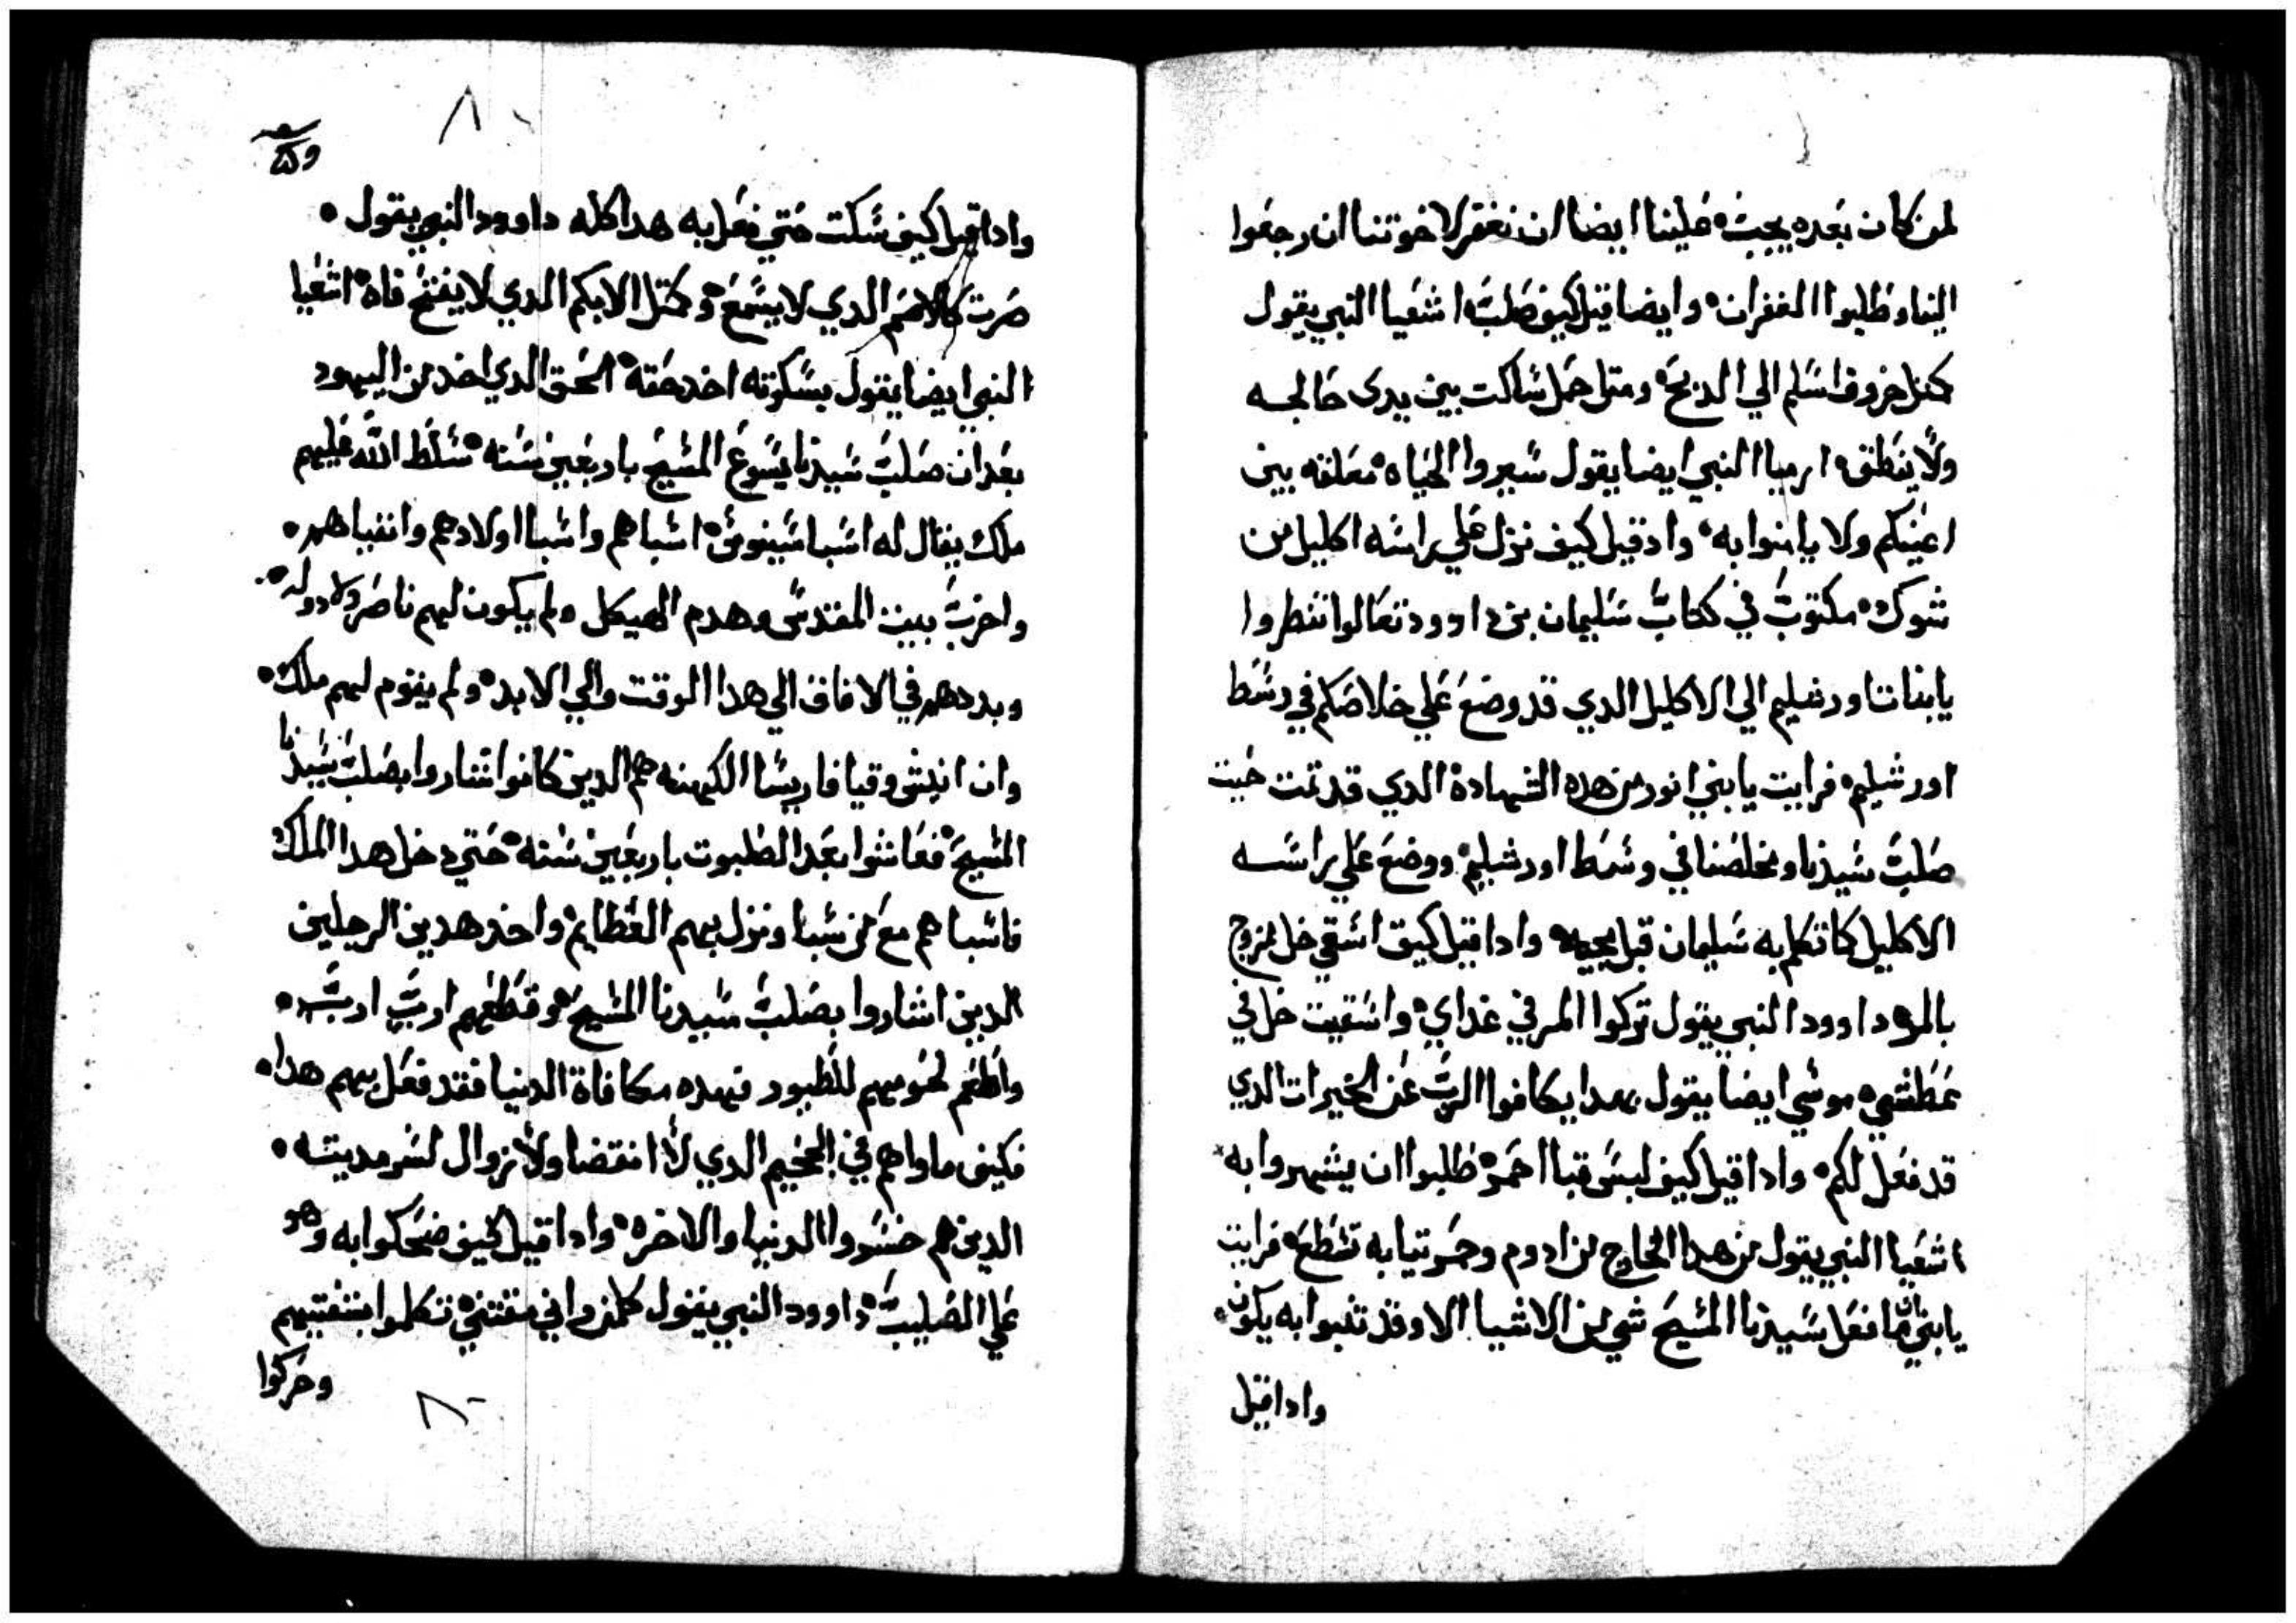 لمن كان بعده يجب علينا ايضا ان نغفر لاخوتنا ان رجعوا
الينا وطلبوا الغفران وايضا قيل كيف صلب اشعيا النبي يقول
كمثل خروف اسلم الي الدبح ومتل حمل ساكت بين يدى حالجه
ولا ينطق ارميا النبي ايضا يقول سيروا الحياه معلقه بين
اعينكم ولا يامنوا به وادقيل كيف نزل علي راسه اكليل من
شوك مكتوب في كتاب سليمان بن داوود تعالوا تنطروا
يابنات اورشليم الي الاكليل الدي قد وضع علي خلاصكم في وسط
اورشليم فرايت يابني انور من هده الشهادة الدي قد تمت حيت
صلب سيدنا ومخلصنا في وسط اورشليم ووضع علي راسه
الاكليل كما تكلم به سليمان قبل مجيه وادا قيل كيف اسقي خل ممزوج
بالمر داوود النبي يقول تركوا المر في غداي واسقيت خل في
عطشي موسي ايضا يقول بهدا يكافوا الرب عن الخيرات الدي
قد فعل لكم وادا قيل كيف لبس قبا احمر طلبوا ان يشهروا به
اشعيا النبي يقول من هدا الخارج من ادوم وحمر تيابه تسطع فرايت
يابني ان ما فعل سيدنا المسيح شي من الاشيا الا وقد تنبوا به يكون
وادا قيل
وادا قيل كيف سكت حتي فعل به هدا كله داوود النبي يقول
صرت كالاصم الدي لا يسمع وكمتل الابكم الدي لا يفتح فاه اشعيا
النبي ايضا يقول بسكوته اخد حقه الحق الدي اخد من اليهود
بعد ان صلب سيدنا يسوع المسيح باربعين سنه سلط الله عليهم
ملك يقال له اسباسينوس اسباهم واسبا اولادهم وانفياهم
واخرب بيت المقدس وهدم الهيكل ولم يكون لهم ناصر ولا دوله
وبددهم في الافاق الي هدا الوقت والي الابد ولم يقوم لهم ملك
وان انيس وقيافا ريسا الكهنه هم الدين كانوا اشاروا بصلب سيدنا
المسيح فعاشوا بعد الصلبوت باربعين سنه حتي دخل هدا الملك
فاسباهم مع من سبا ونزل بهم العظايم واخد هدين الرجلين
الدين اشاروا بصلب سيدنا المسيح وقطعهم ارب ارب
واطعم لحومهم للطيور فهده مكافاة الدنيا فقد فعل بهم هدا
فكيف ماواهم في الجحيم الدي لا انقضا ولا زوال لسرمديته
الدين هم خسروا الدنيا والاخره وادا قيل كيف ضحكوا به وهو
علي الصليب داوود النبي يقول كلمن راني مقتني تكلموا بشفتيهم
وحركوا